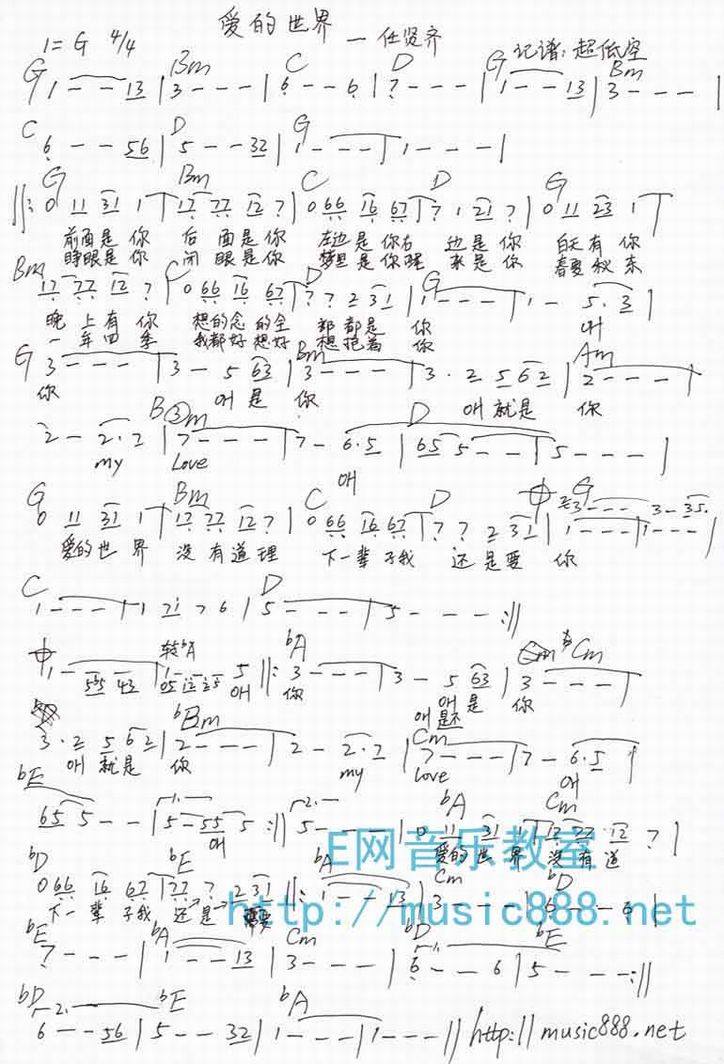 爱的世界 — 任贤齐
1=G 4/4 记谱:超低空
G Bm C D G Bm
1 - - 13 | 3 - - - | 6 - - 6 | 7 - - - | 1 - - 13 | 3 - - - |
C D G
6 - - 56 | 5 - - 32 | 1 - - - | 1 - - - |
G Bm C D G
||: 0 11 31 1 | 17 77 12 7 | 0 66 16 67 | 7 1 21 7 | 0 11 23 1 |
前面是你 后面是你 左边是你右边是你 白天有你
睁眼是你 闭眼是你 梦里是你醒来是你 春夏秋冬
Bm C D G
17 77 12 7 | 0 66 16 67 | 7 7 2 31 | 1 - - - | 1 - 5. 3 |
晚上有你 想的念的全都都是你 叫
一年四季 我都好想好想抱着你
G Bm Am
3 - - - | 3 - 5 63 | 3 - - - | 3. 2 5 62 | 2 - - - |
你 叫是你 叫就是你
Bm D
2 - 2. 2 | 7 - - - | 7 - 6.5 | 65 5 - - | 5 - - - |
my Love 叫
G Bm C D G
0 11 31 1 | 17 77 12 7 | 0 66 16 67 | 7 7 2 31 | 1 - - - | 1 - - - |
爱的世界 没有道理 下一辈子我还是要你
C D
1 - - - | 1 71 7 6 | 5 - - - | 5 - - - :||
转bA bA Cm
1 - 545 43 | 05 12 35 5 ||: 3 - - - | 3 - 5 63 | 3 - - - |
叫 你 叫是 你
叫是不
bBm Cm
3. 2 5 62 | 2 - - - | 2 - 2. 2 | 7 - - - | 7 - 6.5 |
叫就是你 my love 叫
bE bA Cm
65 5 - - | 5 - 55 5 :|| 5 - - - | 0 11 31 1 | 17 77 12 7 |
叫 爱的世界 没有道
E网音乐教室
bD bE bA Cm bD
0 66 16 67 | 77 7 2 31 ||: 1 - - 13 | 3 - - - | 6 - - 6 |
下一辈子我还是要
http://music888.net
bE bA Cm bD bE
7 - - - | 1 - - 13 | 3 - - - | 6 - - 6 | 5 - - - :||
bD 2. bE bA
6 - - 56 | 5 - - 32 | 1 - - - | 1 - - - || http://music888.net